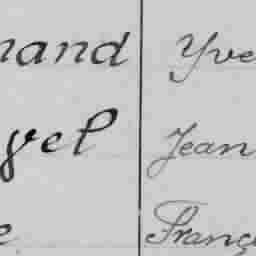 nand Yve
gel Jean
e Franç